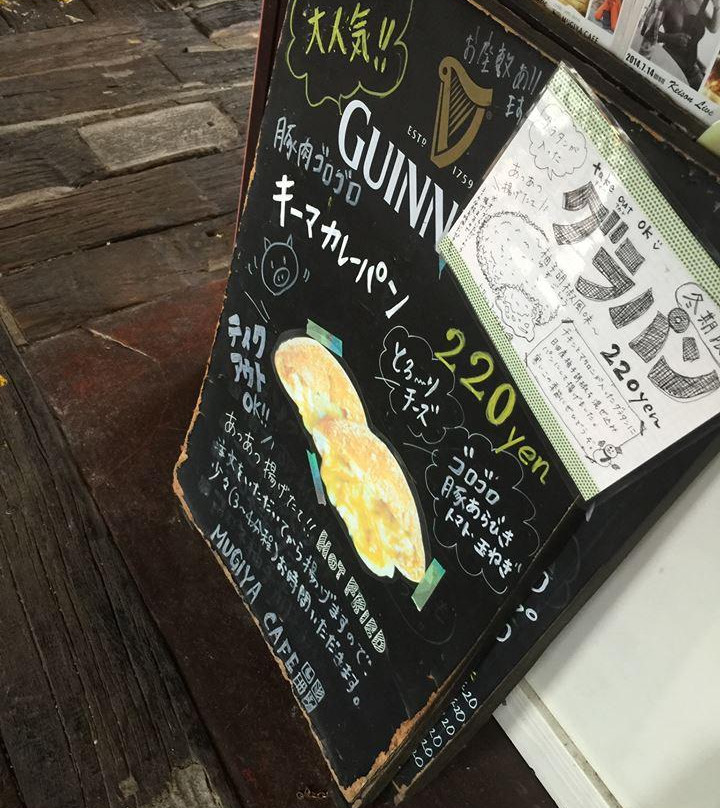 大人気!!
お座敷あり
ます
ESTD
1759
GUINN
豚肉ゴロゴロ
キーマカレーパン
220yen
テイク
アウト
OK!!
とろ〜り
チーズ
ゴロゴロ
豚あらびき
トマト・玉ねぎ
あつあつ揚げたて!!
HOT FRIED
注文をいただいてから揚げますので、
少々(3〜4分程)お時間いただきます。
MUGIYA CAFE
take out OK
あつあつ
揚げたて!!
グラパン
柚子胡椒風味〜
220yen
MUGIYA CAFE
2014.7.14
Keison Live